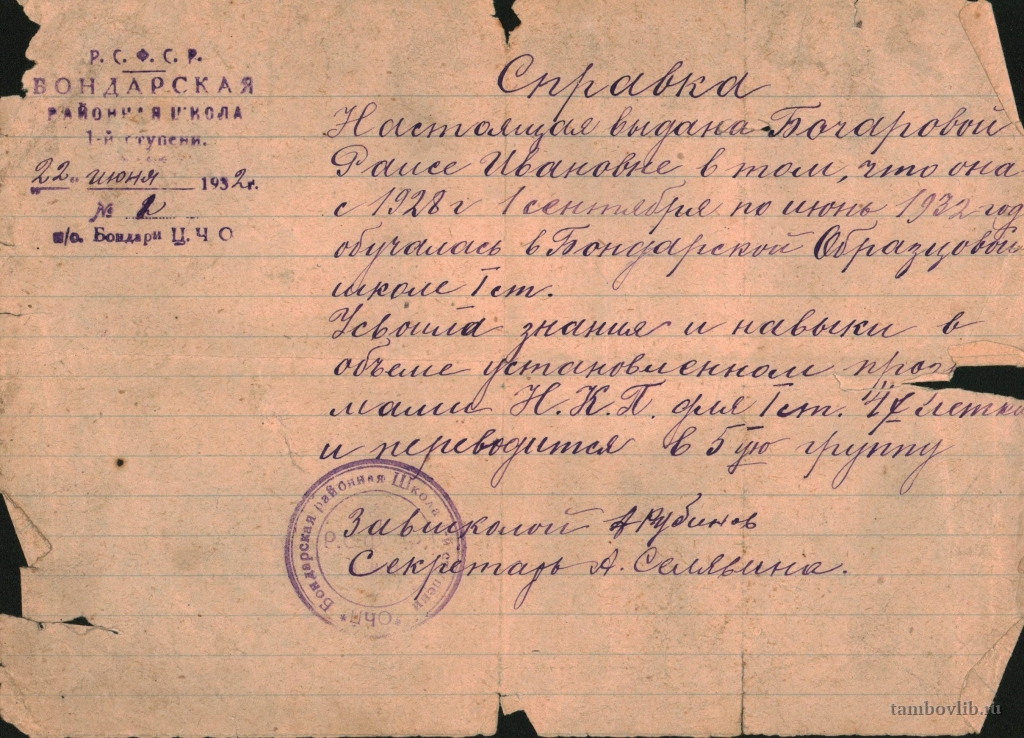 Р. С. Ф. С. Р.
БОНДАРСКАЯ
РАЙОННАЯ ШКОЛА
1-й ступени.
"22" июня 1932 г.
№ 2
п/о. Бондари Ц. Ч О
Справка
Настоящая выдана Бочаровой
Раисе Ивановне в том, что она
с 1928 г 1 сентября по июнь 1932 год
обучалась в Бондарской Образцовой
школе I ст.
Усвоила знания и навыки в
объеме установленном прог
мами Н.К.П. для I ст.
и переводится в 5ую группу
Завшколой А Рубинов
Секретарь А. Селявина.
Бондарская районная Школа
tambovlib.ru